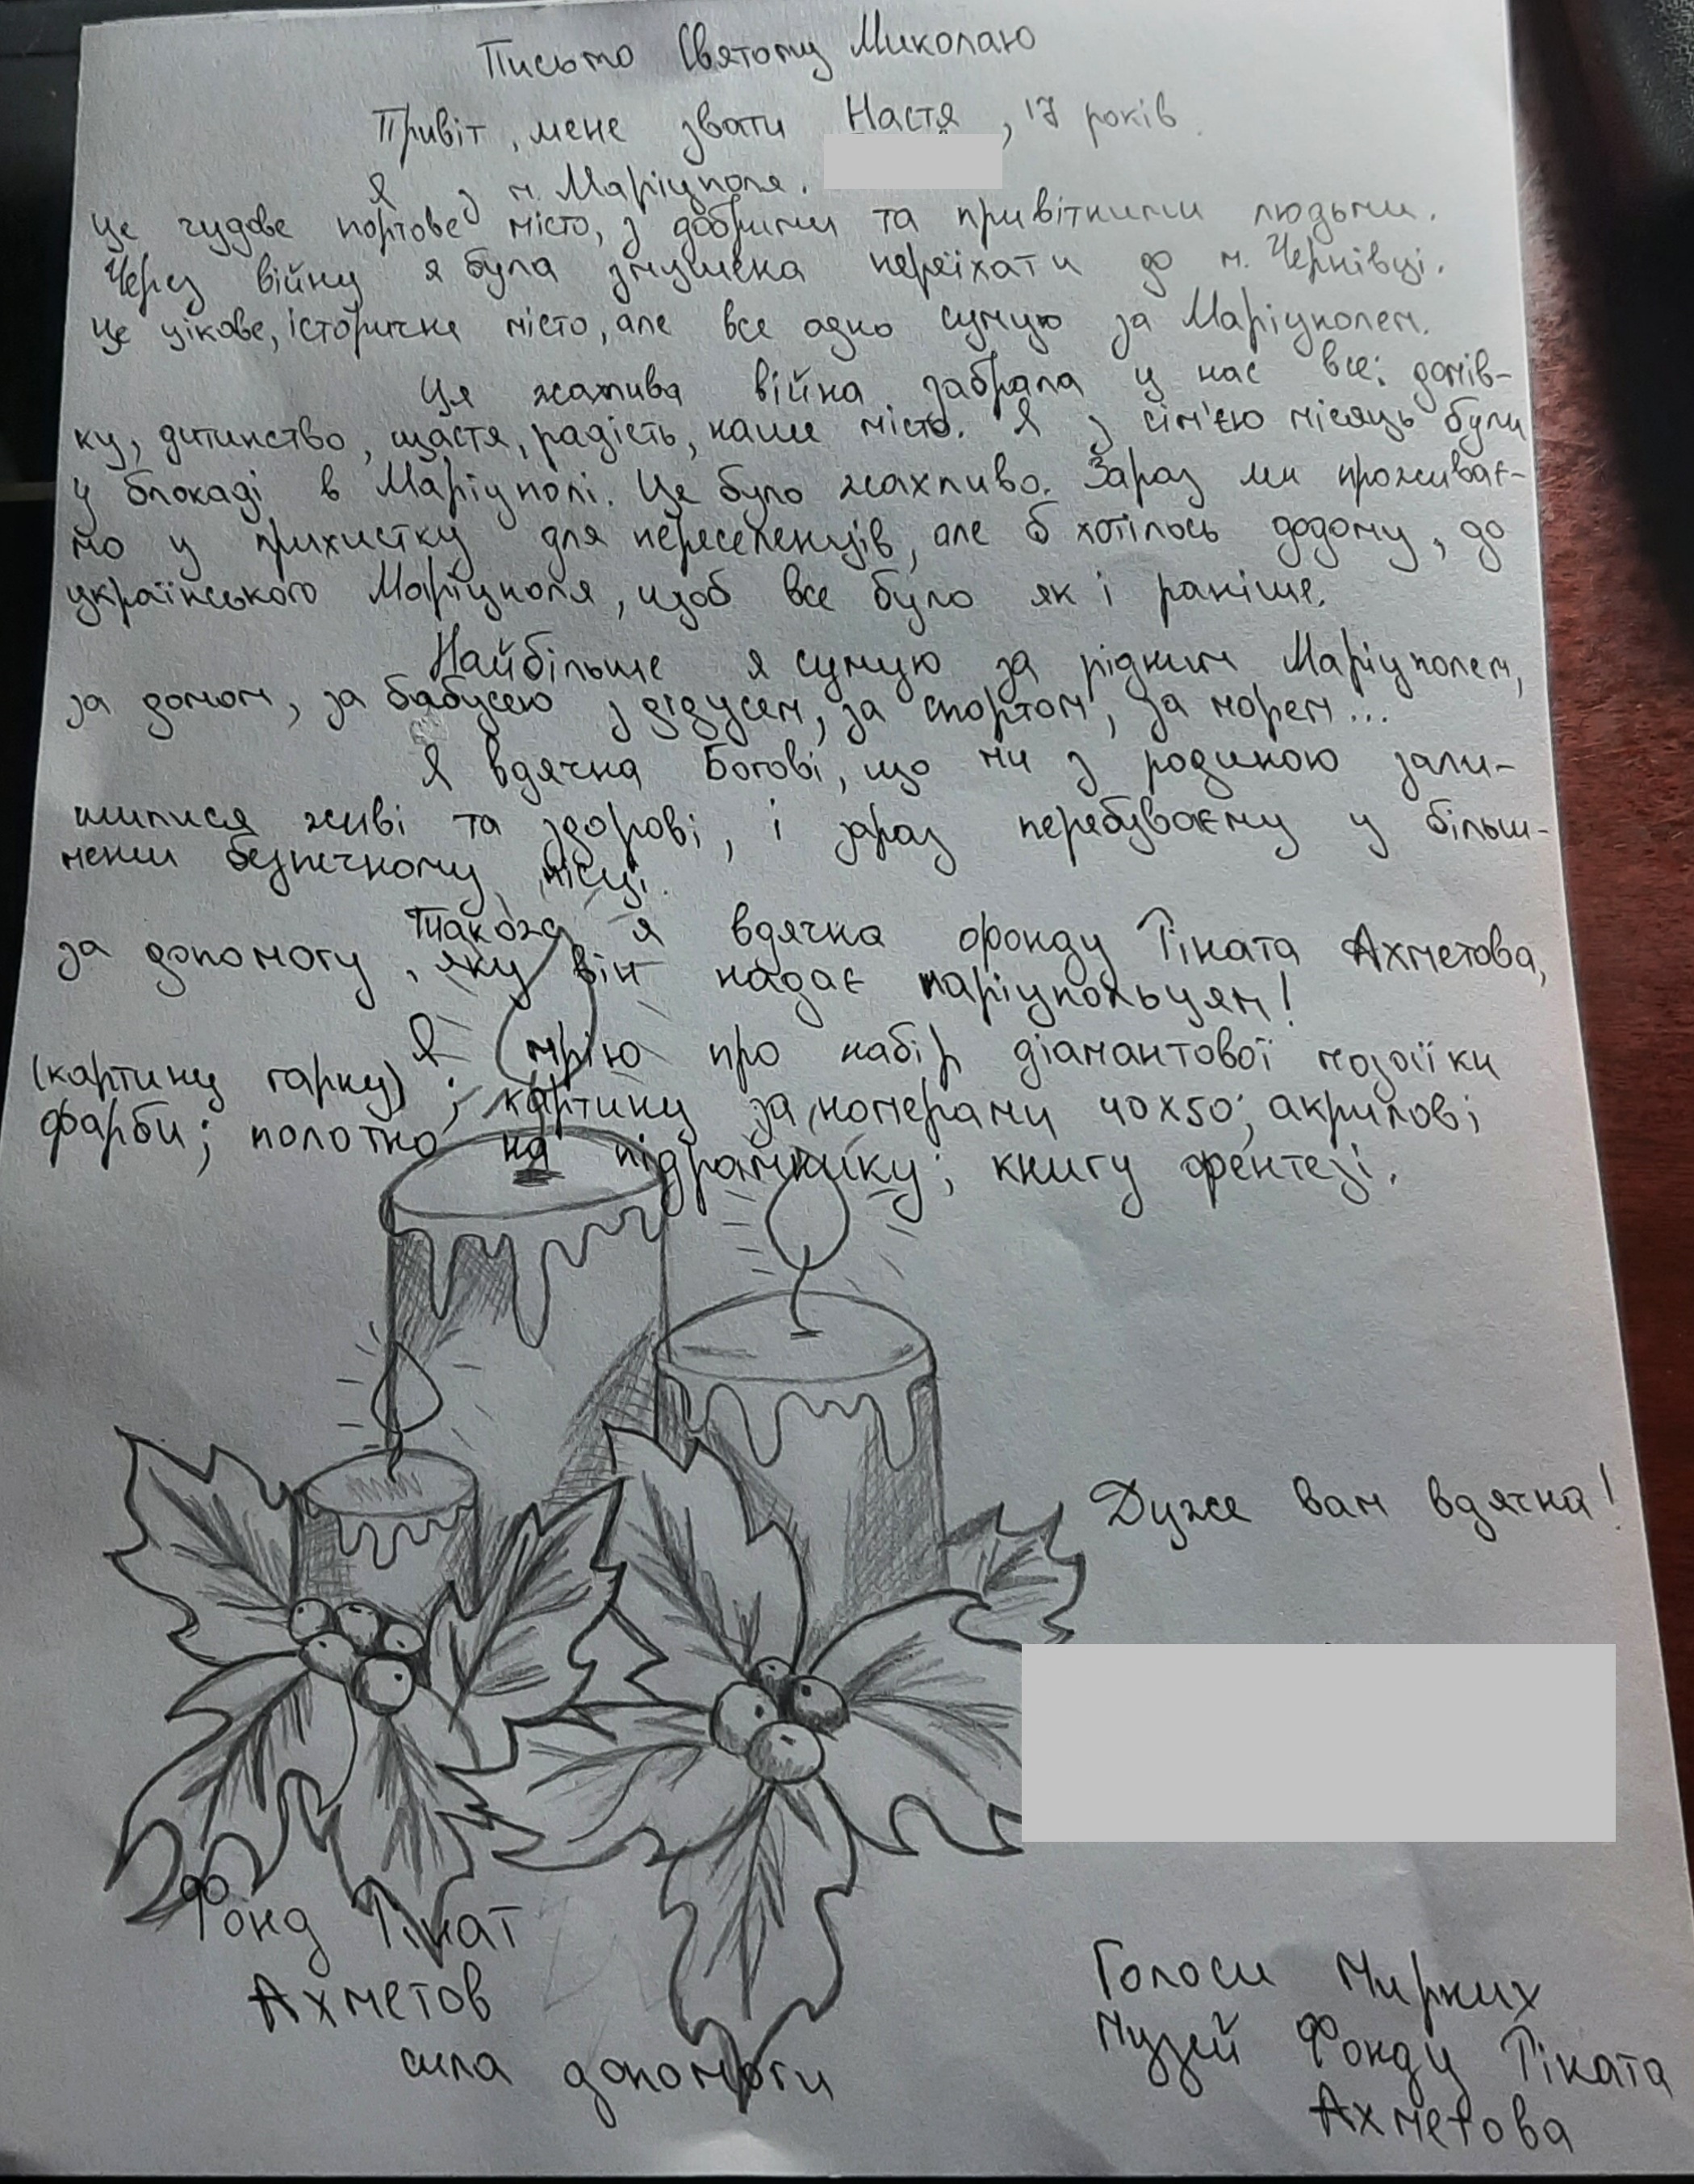 Письмо Святому Миколаю
Привіт, мене звати Настя, 17 років.
Я з м. Маріуполя.
Це чудове портове місто, з добрими та привітними людьми.
Через війну я була змушена переїхати до м. Чернівці.
Це цікаве, історичне місто, але все одно сумую за Маріуполем.
Ця жахлива війна забрала у нас все: домів-
ку, дитинство, щастя, радість, наше місто. Я з сім'єю місяць були
у блокаді в Маріуполі. Це було жахливо. Зараз ми проживає-
мо у прихистку для переселенців, але б хотілось додому, до
українського Маріуполя, щоб все було як і раніше.
Найбільше я сумую за рідним Маріуполем,
за домом, за бабусею з дідусем, за спортом, за морем...
Я вдячна Богові, що ми з родиною зали-
шилися живі та здорові, і зараз перебуваєму у більш-
менш безпечному місці.
Також я вдячна фонду Ріната Ахметова,
за допомогу, яку він надає маріупольцям!
Я мрію про набір діамантової мозаїки
(картину гарну); картину за номерами 40х50; акрилові
фарби; полотно на підрамнику; книгу фентезі.
Дуже вам вдячна!
Фонд Рінат
Ахметов
сила допомоги
Голоси Мирних
Музей Фонду Ріната
Ахметова